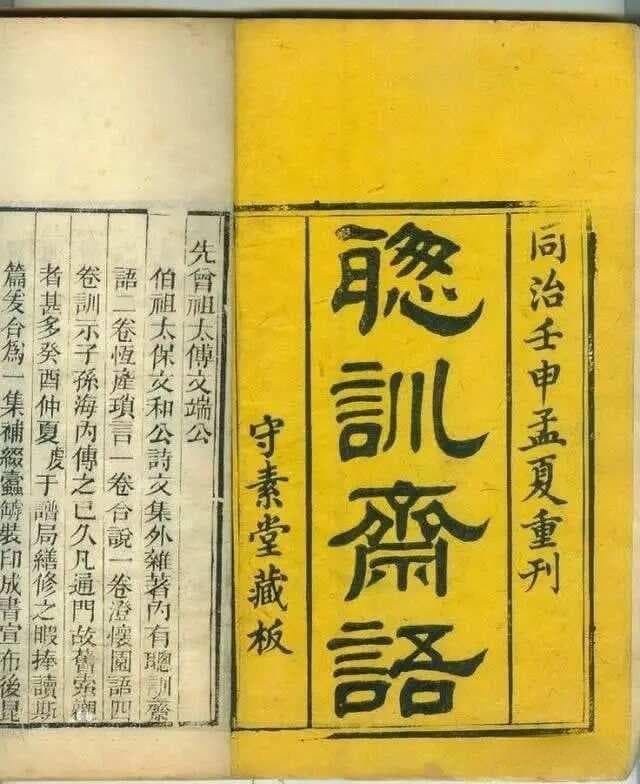 同治壬申孟夏重刊
聰訓齋語
守素堂藏板
先曾祖太傅文端公
伯祖太保文和公詩文集外雜著內有聰訓齋
語二卷恆產瑣言一卷合說一卷澄懷園語四
卷訓示子孫海內傳之已久凡通門故舊索觀
者甚多癸酉仲夏虔于譜局繕修之暇捧讀斯
篇爰合為一集補綴蠧罅裝印成書宣布後昆